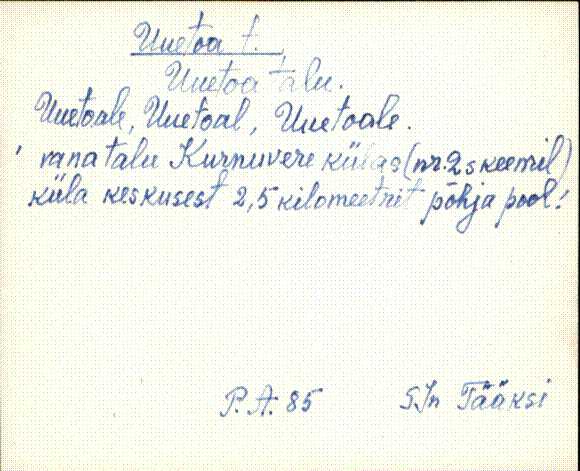 Uuetoa t.
Uuetoa talu.
Uuetoale, Uuetoal, Uuetoale.
' vana talu Kurnuvere külas (nr. 2 skeemil)
küla keskusest 2,5 kilomeetrit põhja pool!
P. A. 85 S.Jn Tääksi